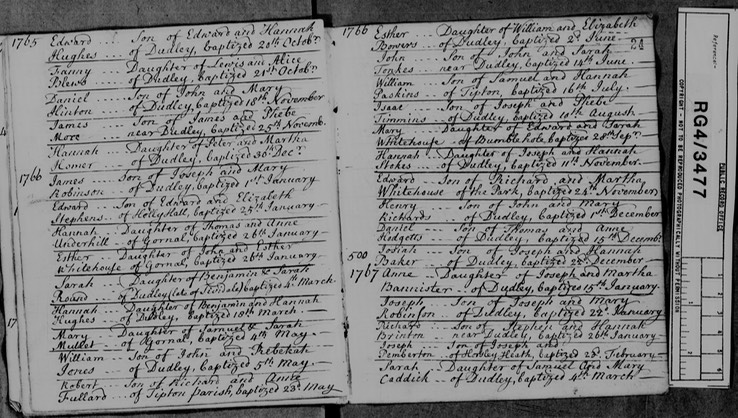 1765 Edward ... Son of Edward and Hannah
Hughes ... of Dudley, baptized 20th Octobr.
Fanny ... Daughter of Lewis and Alice
Blews ... of Dudley, baptized 21st Octobr.
Daniel ... Son of John and Mary
Hinton ... of Dudley, baptized 18th November
James ... Son of James and Phebe
More ... near Dudley, baptized 25th Novemb.
Hannah ... Daughter of Peter and Martha
Homer ... of Dudley, baptized 30th Decr.
1766 James ... Son of Joseph and Mary
Robinson ... of Dudley, baptized 1st January
Edward ... Son of Edward and Elizabeth
Stephens ... of Holly Hall, baptized 25th January
Hannah ... Daughter of Thomas and Anne
Underhill ... of Gornal, baptized 26th January
Esther ... Daughter of John and Esther
Whitehouse of Gornal, baptized 26th January
Sarah ... Daughter of Benjamin & Sarah
Round ... of Dudley (late of) baptized 4th March
Hannah ... Daughter of Benjamin and Hannah
Hughes ... of Dudley, baptized 10th March
Mary ... Daughter of Samuel & Sarah
Mullet ... of Gornal, baptized 4th May
William ... Son of John and Rebekah
Jones ... of Dudley, baptized 5th May
Robert ... Son of Richard and Anne
Fullard ... of Tipton Parish, baptized 23d May
1766 Esther ... Daughter of William and Elizabeth
Bowers ... of Dudley, baptized 2d June
John ... Son of John and Sarah
Tonkes ... near Dudley, baptized 14th June
William ... Son of Samuel and Hannah
Paskins ... of Tipton, baptized 16th July
Isaac ... Son of Joseph and Phebe
Timmins ... of Dudley, baptized 10th August
Mary ... Daughter of Edward and Sarah
Whitehouse of Bumblehole, baptized 28th Sepr.
Hannah ... Daughter of Joseph and Hannah
Stokes ... of Dudley, baptized 11th November
Edward ... Son of Richard and Martha
Whitehouse of the Park, baptized 24th November
Henry ... Son of John and Mary
Richards ... of Dudley, baptized 1st December
Daniel ... Son of Thomas and Anne
Hodgetts ... of Dudley, baptized 15th Decembr.
Josiah ... Son of Joseph and Hannah
500 Baker ... of Dudley, baptized December
1767 Anne ... Daughter of Joseph and Martha
Bannister ... of Dudley, baptized 5th January
Joseph ... Son of Joseph and Mary
Robinson ... of Dudley, baptized 22d January
Richard ... Son of Stephen and Hannah
Brinton ... near Dudley, baptized 26th January
Joseph ... Son of Joseph and
Pemberton of Rowley Heath, baptized February
Sarah ... Daughter of Samuel and Mary
Caddick ... of Dudley, baptized 4th March
Reference:-
RG4/3477
PUBLIC RECORD OFFICE
COPYRIGHT - NOT TO BE REPRODUCED PHOTOGRAPHICALLY WITHOUT PERMISSION
1
2